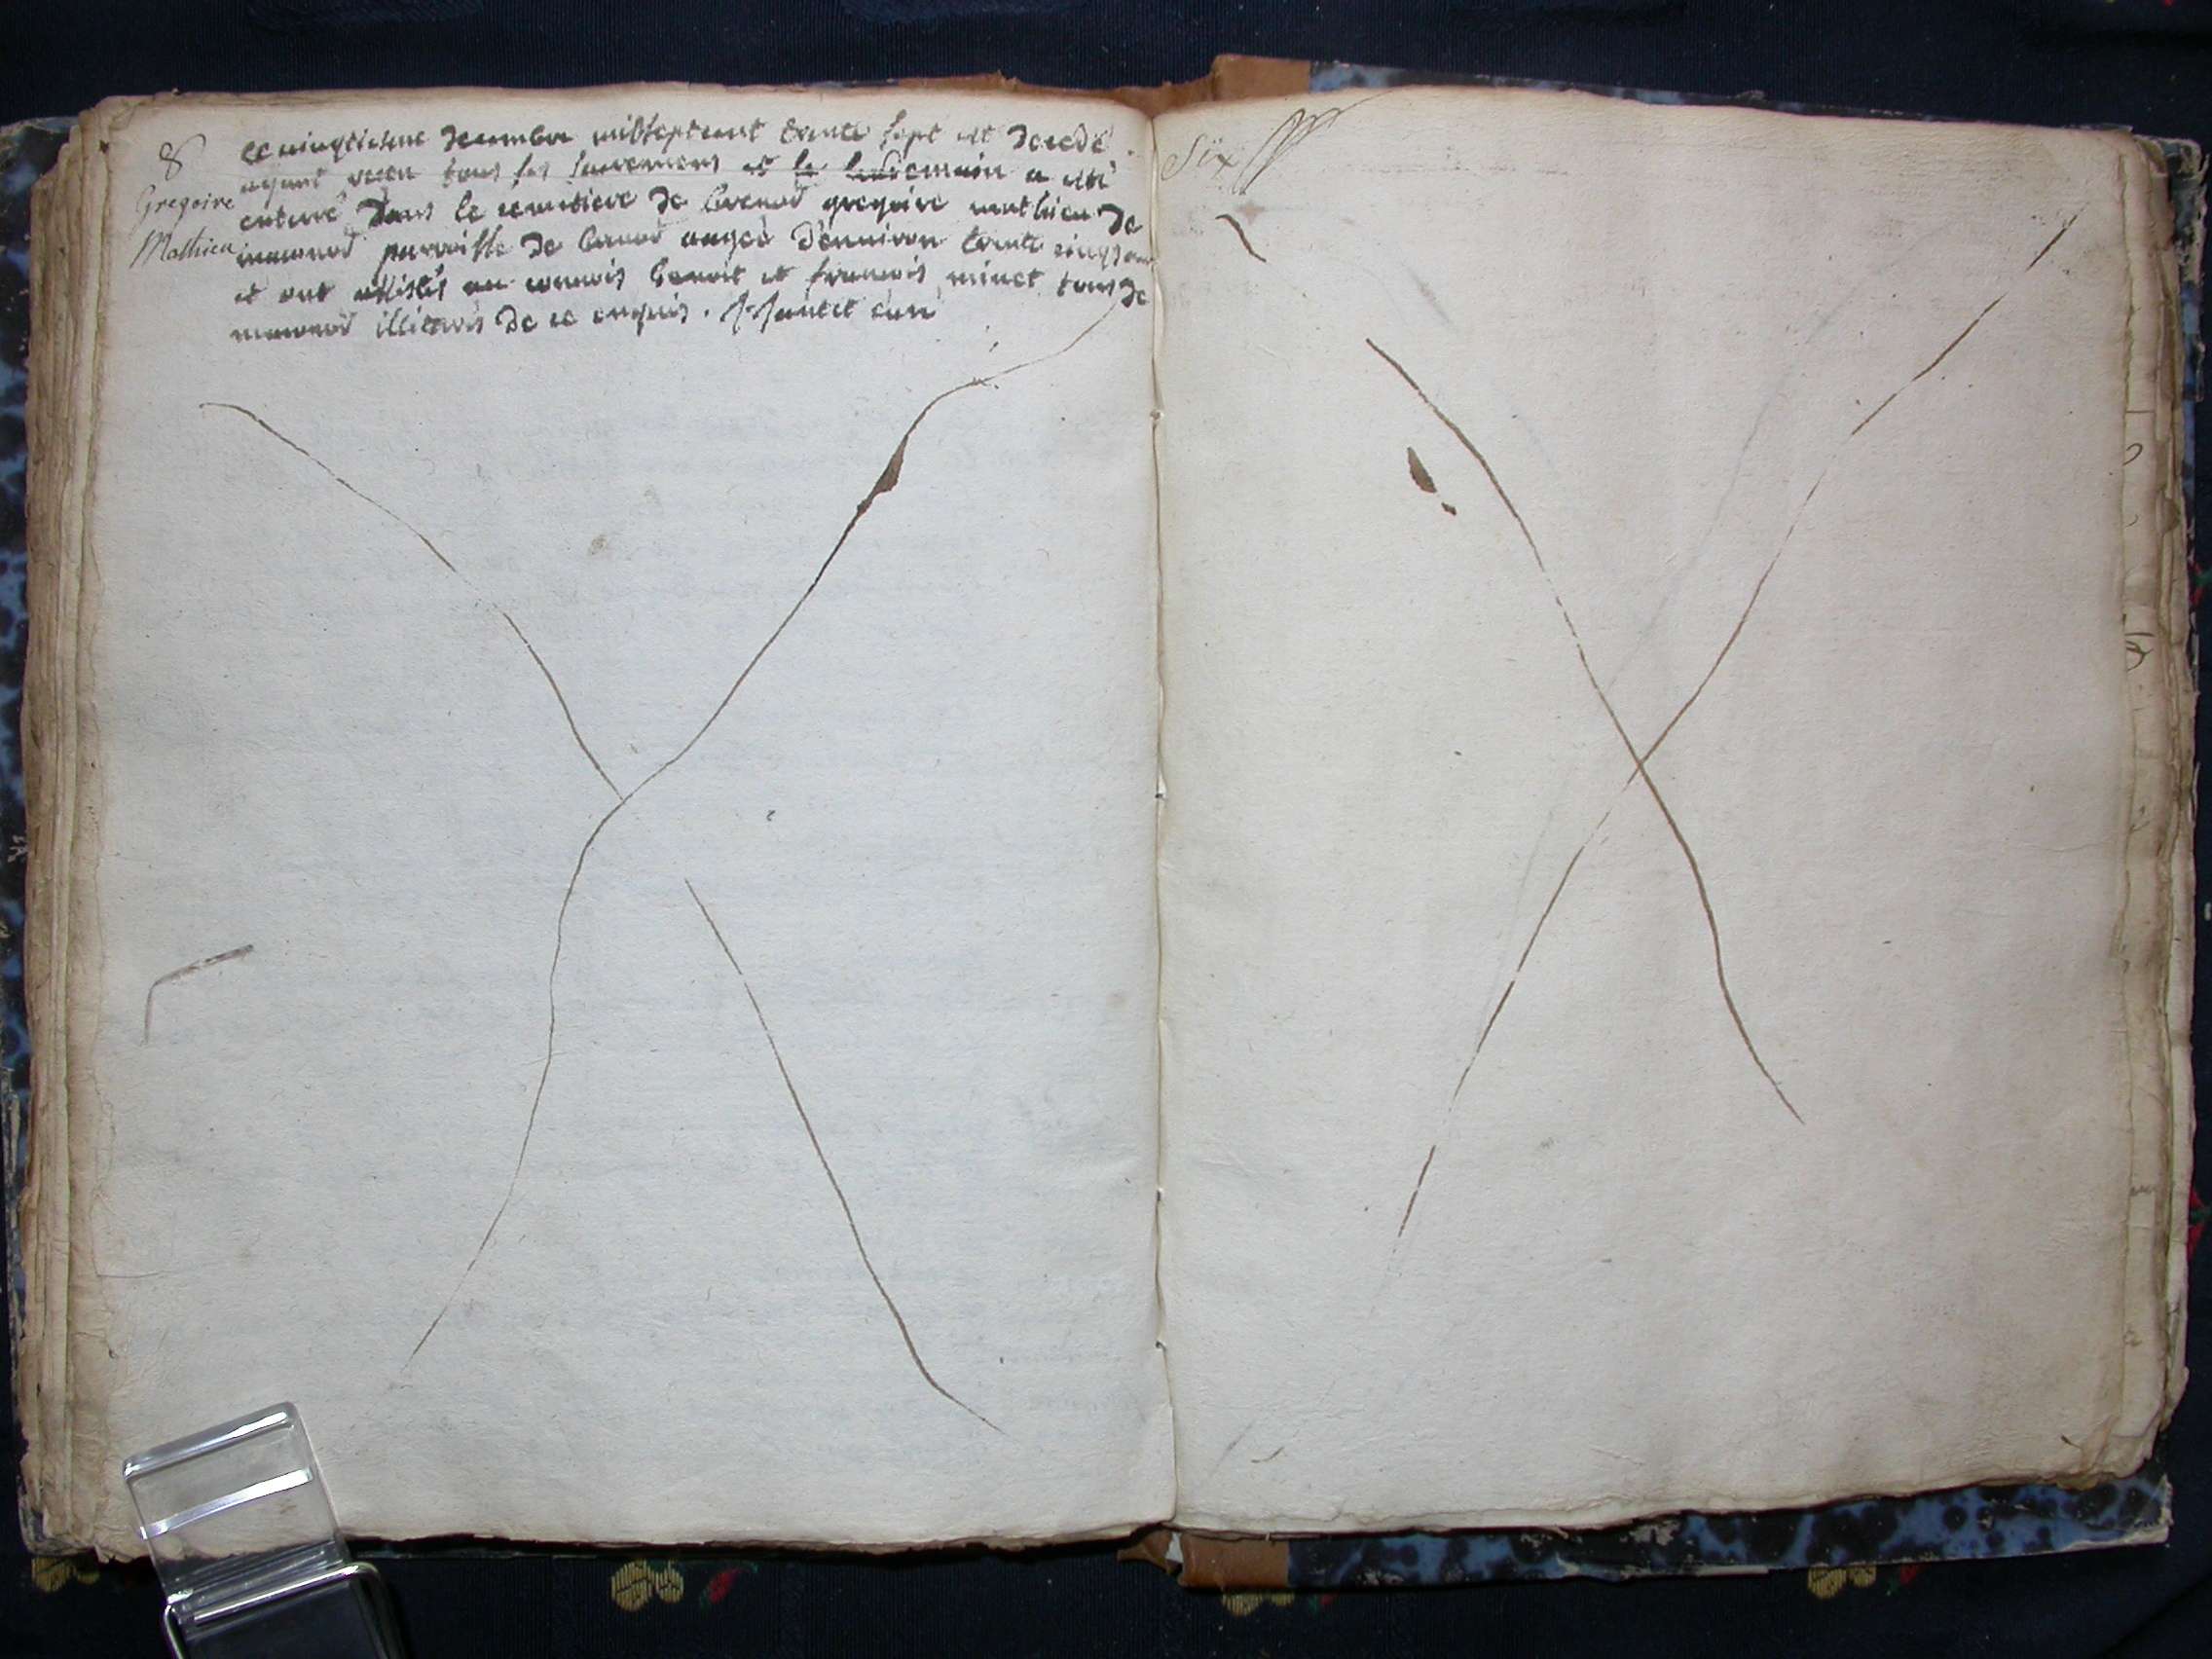 8
Gregoire
Mathieu
le vingtiesme decembre mil sept cent trente sept est decedé
ayant receu tous ses sacremens et le lendemain a esté
enterré dans le cemitiere de brenod gregoire mathieu de
maconod parroisse de brenod augee d'environ trente cinq ans
et ont assistés au convois benoit et francois minet tous de
maconod illiterés de ce enquis. curé
Six